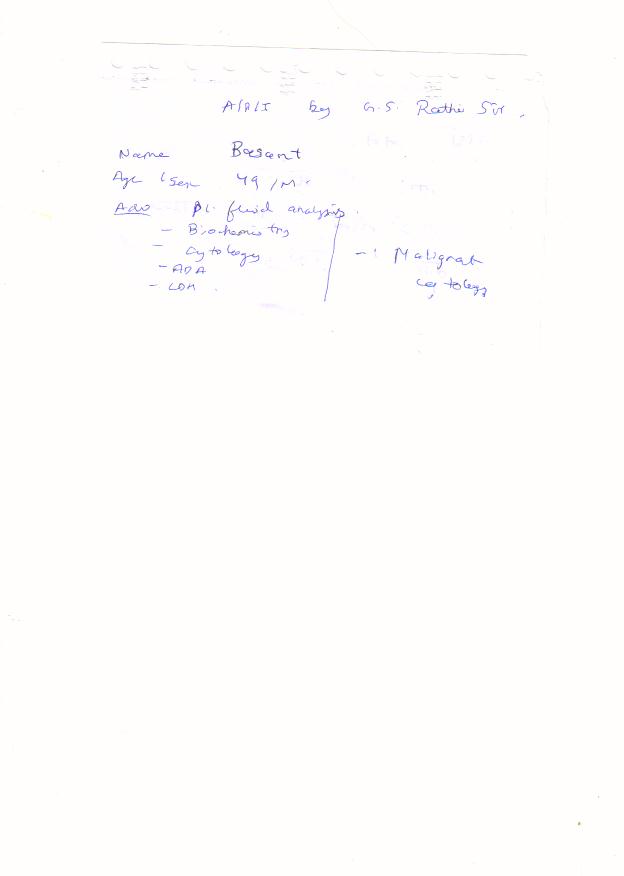 A/A/I by G.S. Rathi Sir.
Name Basant
Age / Sex 49 / M
Adv Pl. fluid analysis.
- Biochemistry
- Cytology
- ADA
- LDH.
- Malignat
cytology